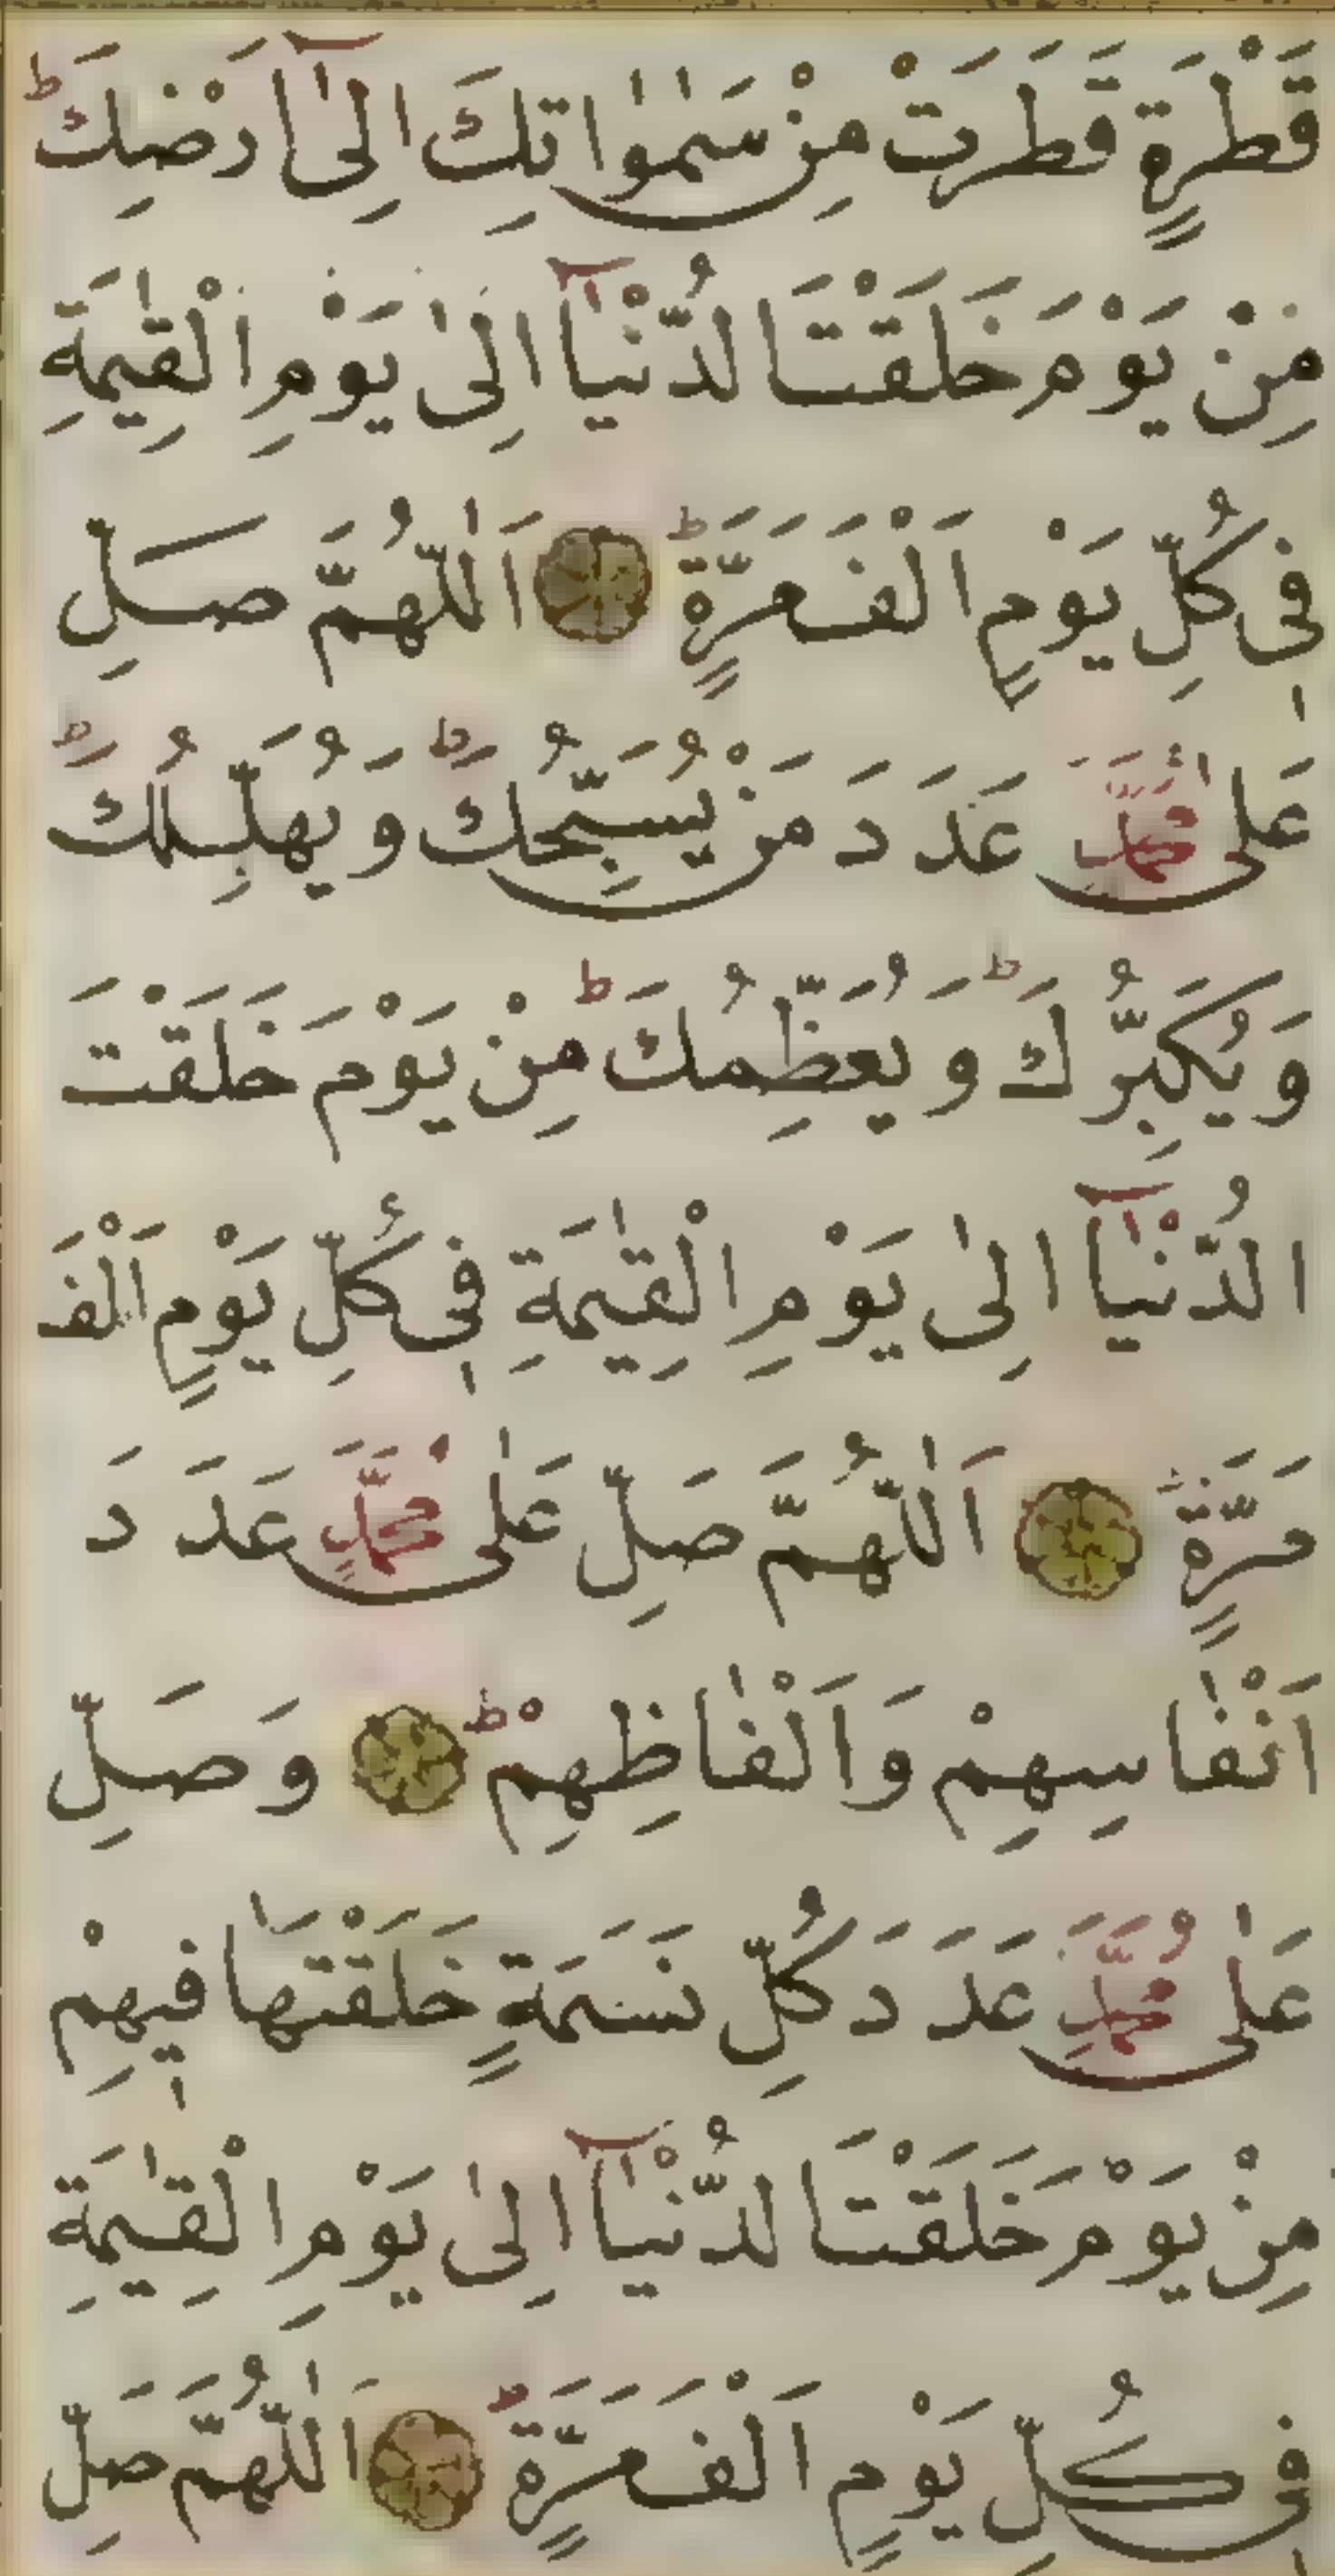 قَطْرَةٍ قَطَرَتْ مِنْ سَمٰوٰاتِكَ اِلٰىٓ اَرْضِكَ ط
مِنْ يَوْمَ خَلَقْتَ الدُّنْيَآ اِلٰى يَوْمِ الْقِيٰمَةِ
فِى كُلِّ يَوْمٍ اَلْفَ مَرَّةٍ ط اَللّٰهُمَّ صَلِّ
عَلٰى مُحَمَّدٍ عَدَدَ مَنْ يُسَبِّحُكَ ط وَيُهَلِّلُكَ ط
وَيُكَبِّرُكَ ط وَيُعَظِّمُكَ ط مِنْ يَوْمَ خَلَقْتَ
الدُّنْيَآ اِلٰى يَوْمِ الْقِيٰمَةِ فِى كُلِّ يَوْمٍ اَلْفَ
مَرَّةٍ ط اَللّٰهُمَّ صَلِّ عَلٰى مُحَمَّدٍ عَدَدَ
اَنْفٰاسِهِمْ وَاَلْفٰاظِهِمْ ط وَصَلِّ
عَلٰى مُحَمَّدٍ عَدَدَ كُلِّ نَسَمَةٍ خَلَقْتَهَا فِيهِمْ
مِنْ يَوْمَ خَلَقْتَ الدُّنْيَآ اِلٰى يَوْمِ الْقِيٰمَةِ
فِى كُلِّ يَوْمٍ اَلْفَ مَرَّةٍ ط اَللّٰهُمَّ صَلِّ